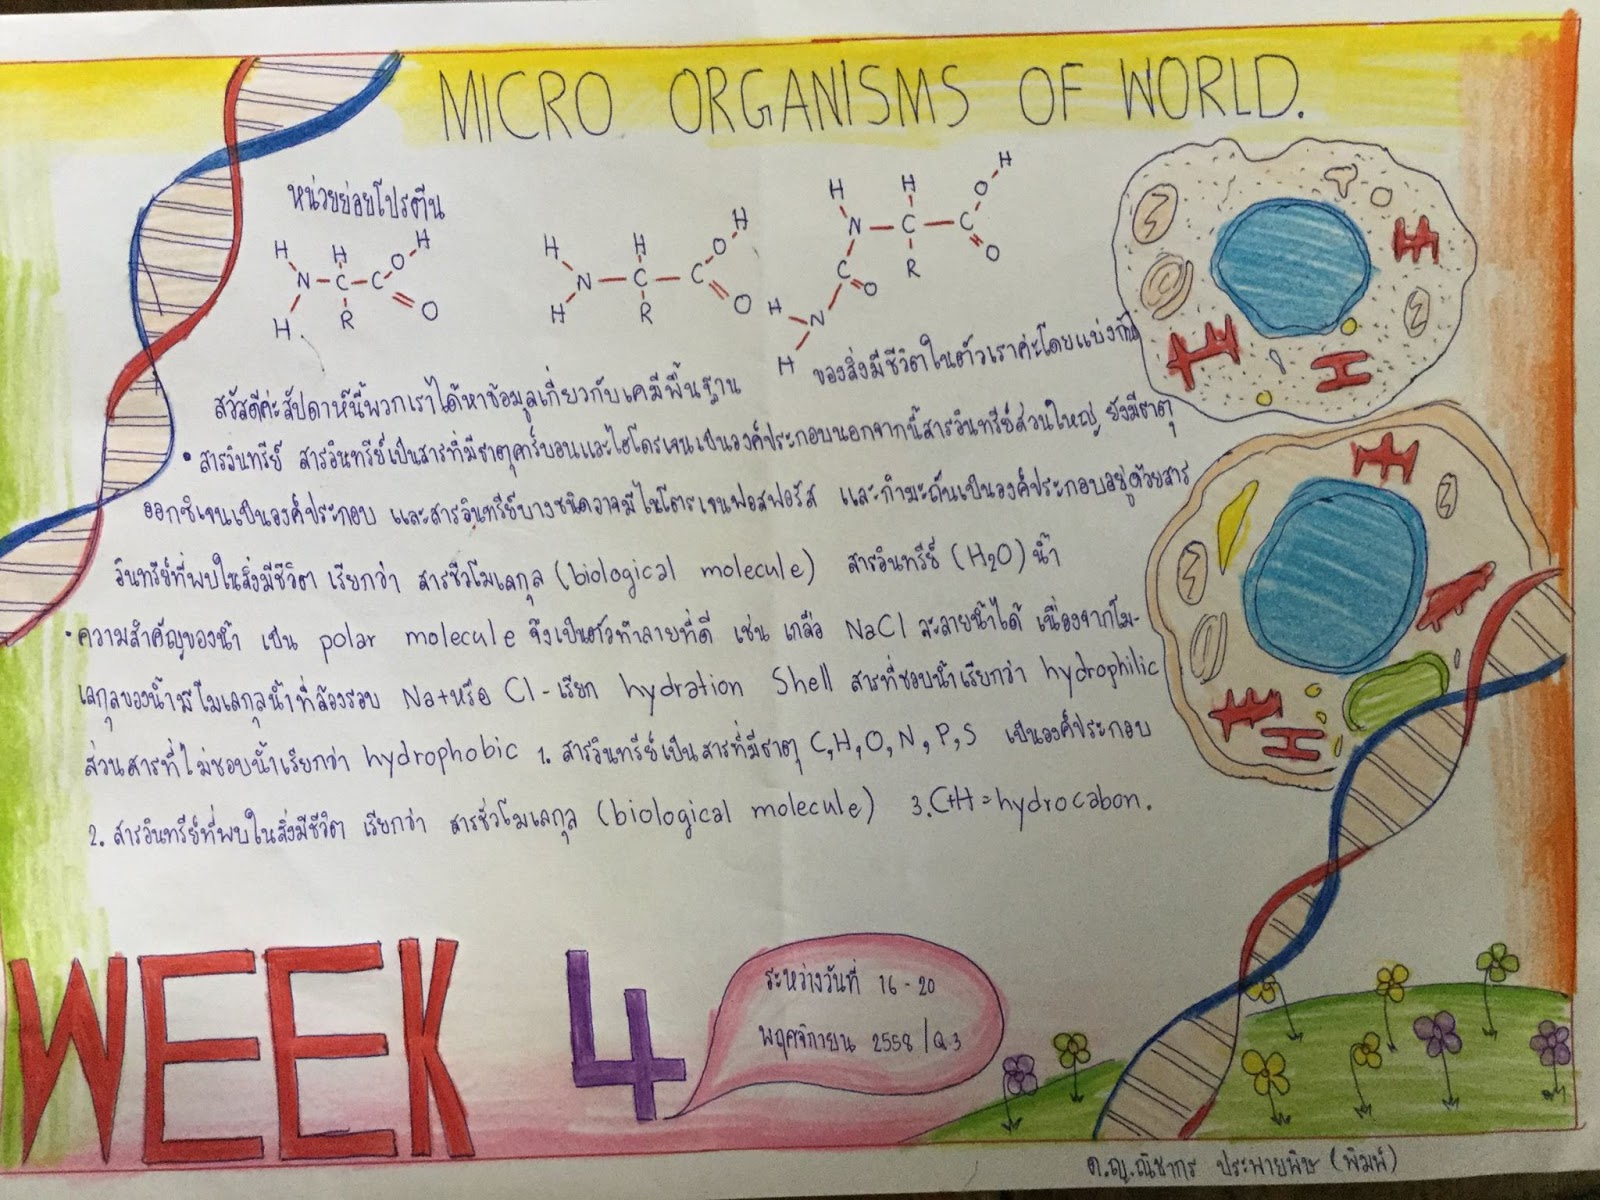 MICRO ORGANISMS OF WORLD.
หน่วยย่อยโปรตีน
H H H
N C C O O
H R
H H H
N C C O O
H R
H H H
N C C O O
C O R
H N
H
สวัสดีค่ะสัปดาห์นี้พวกเราได้หาข้อมูลเกี่ยวกับเคมีพื้นฐาน ของสิ่งมีชีวิตในตัวเราค่ะโดยแบ่งกัน
• สารอินทรีย์ สารอินทรีย์เป็นสารที่มีธาตุคาร์บอนและไฮโดรเจนเป็นองค์ประกอบนอกจากนี้สารอินทรีย์ส่วนใหญ่ ยังมีธาตุ
ออกซิเจนเป็นองค์ประกอบ และสารอินทรีย์บางชนิดอาจมีไนโตรเจนฟอสฟอรัส และกำมะถันเป็นองค์ประกอบอยู่ด้วยสาร
อินทรีย์ที่พบในสิ่งมีชีวิต เรียกว่า สารชีวโมเลกุล (biological molecule) สารอินทรีย์ (H2O) น้ำ
• ความสำคัญของน้ำ เป็น polar molecule จึงเป็นตัวทำลายที่ดี เช่น เกลือ NaCl ละลายน้ำได้ เนื่องจากโม-
เลกุลของน้ำมีโมเลกุลน้ำที่ล้องรอบ Na+หรือ Cl-เรียก hydration Shell สารที่ชอบน้ำเรียกว่า hydrophilic
ส่วนสารที่ไม่ชอบน้ำเรียกว่า hydrophobic 1. สารอินทรีย์เป็นสารที่มีธาตุ C,H,O,N,P,S เป็นองค์ประกอบ
2. สารอินทรีย์ที่พบในสิ่งมีชีวิต เรียกว่า สารชีวโมเลกุล (biological molecule) 3.C+H=hydrocabon.
WEEK 4
ระหว่างวันที่ 16-20
พฤศจิกายน 2558/Q.3
ด.ญ.ณิชากร ประพายพิษ (พิมพ์)